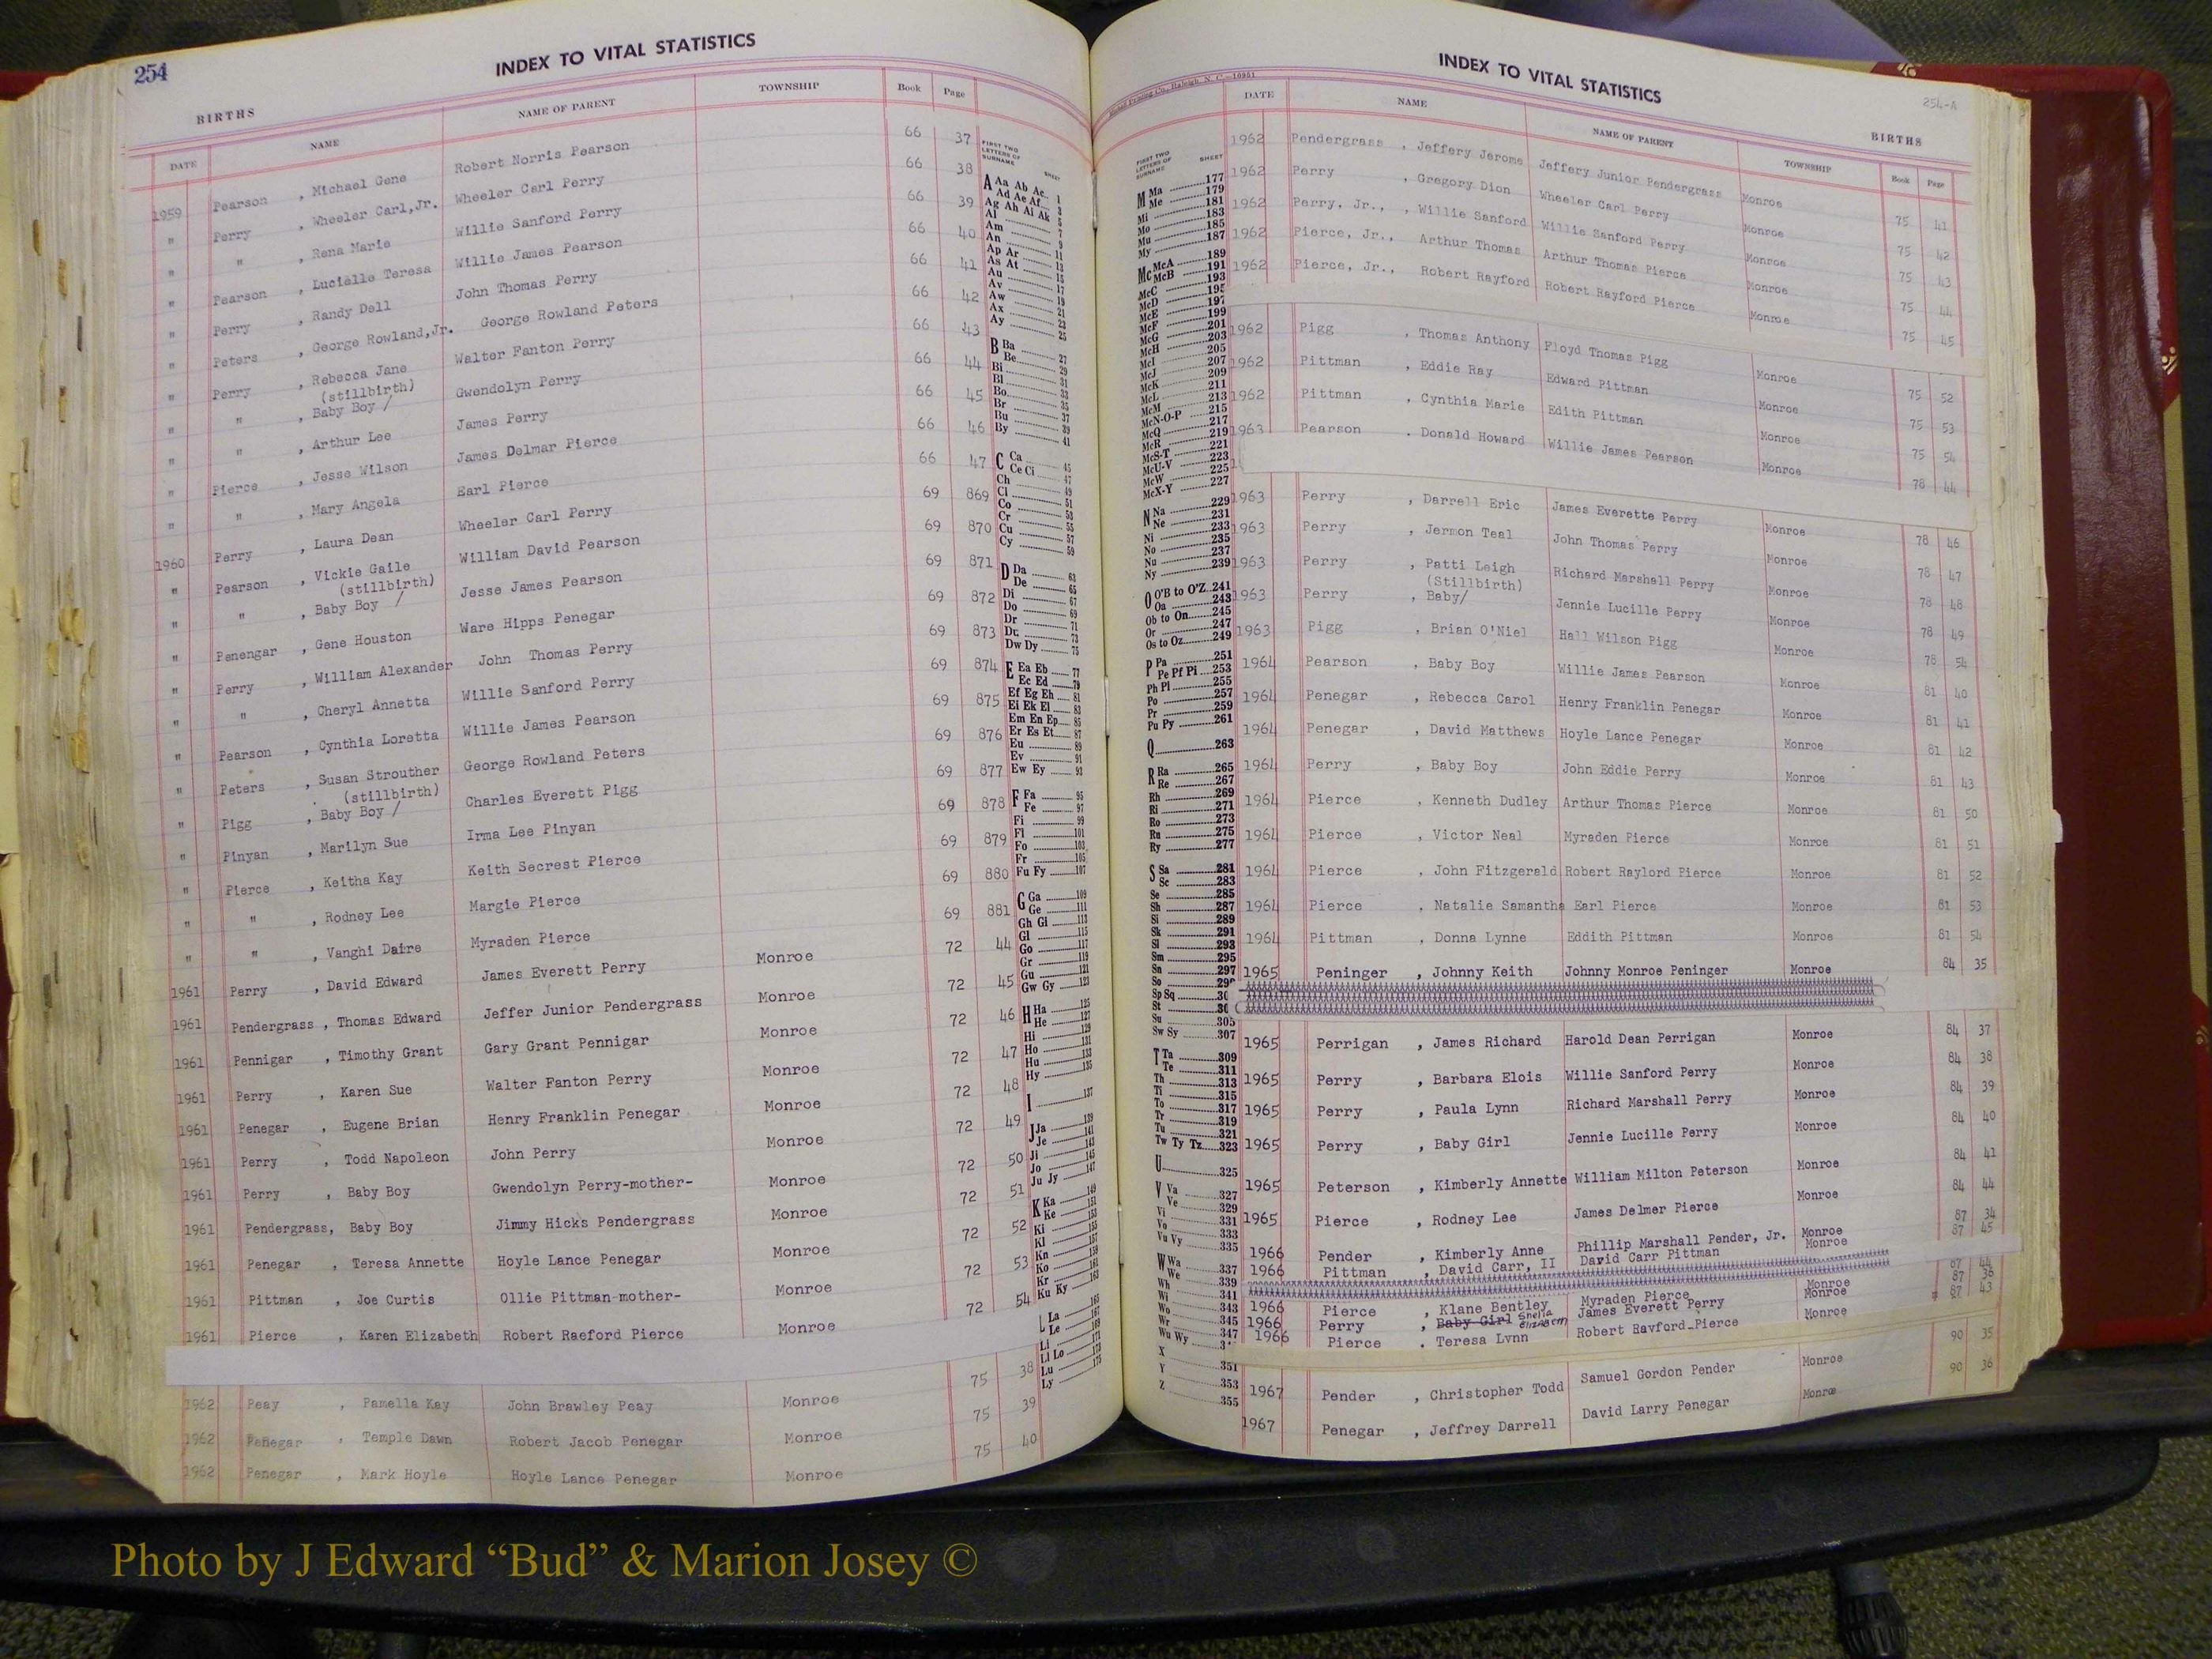 254
INDEX TO VITAL STATISTICS
BIRTHS
DATE NAME NAME OF PARENT TOWNSHIP Book Page
1959 Pearson , Michael Gene Robert Norris Pearson 66 37
" Perry , Wheeler Carl, Jr. Wheeler Carl Perry 66 38
" " , Rena Marie Willie Sanford Perry 66 39
" Pearson , Lucielle Teresa Willie James Pearson 66 40
" Perry , Randy Dell John Thomas Perry 66 41
" Peters , George Rowland, Jr. George Rowland Peters 66 42
" Perry , Rebecca Jane Walter Fanton Perry 66 43
(stillbirth)
" " , Baby Boy / Gwendolyn Perry 66 44
" " , Arthur Lee James Perry 66 45
" Pierce , Jesse Wilson James Delmar Pierce 66 46
" " , Mary Angela Earl Pierce 66 47
1960 Perry , Laura Dean Wheeler Carl Perry 69 869
" Pearson , Vickie Gaile William David Pearson 69 870
(stillbirth)
" " , Baby Boy / Jesse James Pearson 69 871
" Penengar , Gene Houston Ware Hipps Penegar 69 872
" Perry , William Alexander John Thomas Perry 69 873
" " , Cheryl Annetta Willie Sanford Perry 69 874
" Pearson , Cynthia Loretta Willie James Pearson 69 875
" Peters , Susan Strouther George Rowland Peters 69 876
(stillbirth)
" Pigg , Baby Boy / Charles Everett Pigg 69 877
" Pinyan , Marilyn Sue Irma Lee Pinyan 69 878
" Pierce , Keitha Kay Keith Secrest Pierce 69 879
" " , Rodney Lee Margie Pierce 69 880
" " , Vanghi Daire Myraden Pierce 69 881
1961 Perry , David Edward James Everett Perry Monroe 72 44
1961 Pendergrass , Thomas Edward Jeffer Junior Pendergrass Monroe 72 45
1961 Pennigar , Timothy Grant Gary Grant Pennigar Monroe 72 46
1961 Perry , Karen Sue Walter Fanton Perry Monroe 72 47
1961 Penegar , Eugene Brian Henry Franklin Penegar Monroe 72 48
1961 Perry , Todd Napoleon John Perry Monroe 72 49
1961 Perry , Baby Boy Gwendolyn Perry-mother- Monroe 72 50
1961 Pendergrass, Baby Boy Jimmy Hicks Pendergrass Monroe 72 51
1961 Penegar , Teresa Annette Hoyle Lance Penegar Monroe 72 52
1961 Pittman , Joe Curtis Ollie Pittman-mother- Monroe 72 53
1961 Pierce , Karen Elizabeth Robert Raeford Pierce Monroe 72 54
1962 Peay , Pamella Kay John Brawley Peay Monroe 75 38
1962 Penegar , Temple Dawn Robert Jacob Penegar Monroe 75 39
1962 Penegar , Mark Hoyle Hoyle Lance Penegar Monroe 75 40
FIRST TWO LETTERS OF SURNAME SHEET
A Aa Ab Ac 1
Ad Ae Af 3
Ag Ah Ai Ak 5
Al 7
Am 9
An 11
Ap Ar 13
As At 15
Au 17
Av 19
Aw 21
Ax 23
Ay 25
B Ba 27
Be 29
Bi 31
Bl 33
Bo 35
Br 37
Bu 39
By 41
C Ca 45
Ce Ci 47
Ch 49
Cl 51
Co 53
Cr 55
Cu 57
Cy 59
D Da 63
De 65
Di 67
Do 69
Dr 71
Du 73
Dw Dy 75
E Ea Eb 77
Ec Ed 79
Ef Eg Eh 81
Ei Ek El 83
Em En Ep 85
Er Es Et 87
Eu 89
Ev 91
Ew Ey 93
F Fa 95
Fe 97
Fi 99
Fl 101
Fo 103
Fr 105
Fu Fy 107
G Ga 109
Ge 111
Gh Gi 113
Gl 115
Go 117
Gr 119
Gu 121
Gw Gy 123
H Ha 125
He 127
Hi 129
Ho 131
Hu 133
Hy 135
I 137
J Ja 139
Je 141
Ji 143
Jo 145
Ju Jy 147
K Ka 149
Ke 151
Ki 153
Kl 155
Kn 157
Ko 159
Kr 161
Ku Ky 163
L La 165
Le 167
Li 169
Ll Lo 171
Lu 173
Ly 175
INDEX TO VITAL STATISTICS
254-A
BIRTHS
DATE NAME NAME OF PARENT TOWNSHIP Book Page
FIRST TWO LETTERS OF SURNAME SHEET
M Ma 177
Me 179
Mi 181
Mo 183
Mu 185
My 187
Mc McA 189
McB 191
McC 193
McD 195
McE 197
McF 199
McG 201
McH 203
McI 205
McJ 207
McK 209
McL 211
McM 213
McN-O-P 215
McQ 217
McR 219
McS-T 221
McU-V 223
McW 225
McX-Y 227
N Na 229
Ne 231
Ni 233
No 235
Nu 237
Ny 239
O O'B to O'Z 241
Oa 243
Ob to On 245
Or 247
Os to Oz 249
P Pa 251
Pe Pf Pi 253
Ph Pl 255
Po 257
Pr 259
Pu Py 261
Q 263
R Ra 265
Re 267
Rh 269
Ri 271
Ro 273
Ru 275
Ry 277
S Sa 281
Sc 283
Se 285
Sh 287
Si 289
Sk 291
Sl 293
Sm 295
Sn 297
So
Sp Sq
St
Su 305
Sw Sy 307
T Ta 309
Te 311
Th 313
Ti 315
To 317
Tr 319
Tu 321
Tw Ty Tz 323
U 325
V Va 327
Ve 329
Vi 331
Vo 333
Vu Vy 335
W Wa 337
We 339
Wh 341
Wi 343
Wo 345
Wr 347
Wu Wy
X 351
Y 353
Z 355
1962 Pendergrass , Jeffery Jerome Jeffery Junior Pendergrass Monroe 75 41
1962 Perry , Gregory Dion Wheeler Carl Perry Monroe 75 42
1962 Perry, Jr., , Willie Sanford Willie Sanford Perry Monroe 75 43
1962 Pierce, Jr., Arthur Thomas Arthur Thomas Pierce Monroe 75 44
1962 Pierce, Jr., Robert Rayford Robert Rayford Pierce Monroe 75 45
1962 Pigg , Thomas Anthony Ployd Thomas Pigg Monroe 75 52
1962 Pittman , Eddie Ray Edward Pittman Monroe 75 53
1962 Pittman , Cynthia Marie Edith Pittman Monroe 75 54
1963 Pearson . Donald Howard Willie James Pearson Monroe 78 44
1963 Perry , Darrell Eric James Everette Perry Monroe 78 46
1963 Perry , Jermon Teal John Thomas Perry Monroe 78 47
1963 Perry , Patti Leigh Richard Marshall Perry Monroe 78 48
(Stillbirth)
1963 Perry , Baby/ Jennie Lucille Perry Monroe 78 49
1963 Pigg , Brian O'Niel Hall Wilson Pigg Monroe 78 54
1964 Pearson , Baby Boy Willie James Pearson Monroe 81 40
1964 Penegar , Rebecca Carol Henry Franklin Penegar Monroe 81 41
1964 Penegar , David Matthews Hoyle Lance Penegar Monroe 81 42
1964 Perry , Baby Boy John Eddie Perry Monroe 81 43
1964 Pierce , Kenneth Dudley Arthur Thomas Pierce Monroe 81 50
1964 Pierce , Victor Neal Myraden Pierce Monroe 81 51
1964 Pierce , John Fitzgerald Robert Raylord Pierce Monroe 81 52
1964 Pierce , Natalie Samantha Earl Pierce Monroe 81 53
1964 Pittman , Donna Lynne Eddith Pittman Monroe 81 54
1965 Peninger , Johnny Keith Johnny Monroe Peninger Monroe 84 35
1965 Perrigan , James Richard Harold Dean Perrigan Monroe 84 37
1965 Perry , Barbara Elois Willie Sanford Perry Monroe 84 38
1965 Perry , Paula Lynn Richard Marshall Perry Monroe 84 39
1965 Perry , Baby Girl Jennie Lucille Perry Monroe 84 40
1965 Peterson , Kimberly Annette William Milton Peterson Monroe 84 41
1965 Pierce , Rodney Lee James Delmer Pierce Monroe 84 44
1966 Pender , Kimberly Anne Phillip Marshall Pender, Jr. Monroe 87 34
1966 Pittman , David Carr, II David Carr Pittman Monroe 87 45
1966 Pierce , Klane Bentley Myraden Pierce Monroe 87 44
1966 Perry , Baby Girl Shelia Elizabeth James Everett Perry Monroe 87 36
1966 Pierce . Teresa Lynn Robert Rayford Pierce Monroe 87 43
1967 Pender , Christopher Todd Samuel Gordon Pender Monroe 90 35
1967 Penegar , Jeffrey Darrell David Larry Penegar Monroe 90 36
Photo by J Edward “Bud” & Marion Josey ©